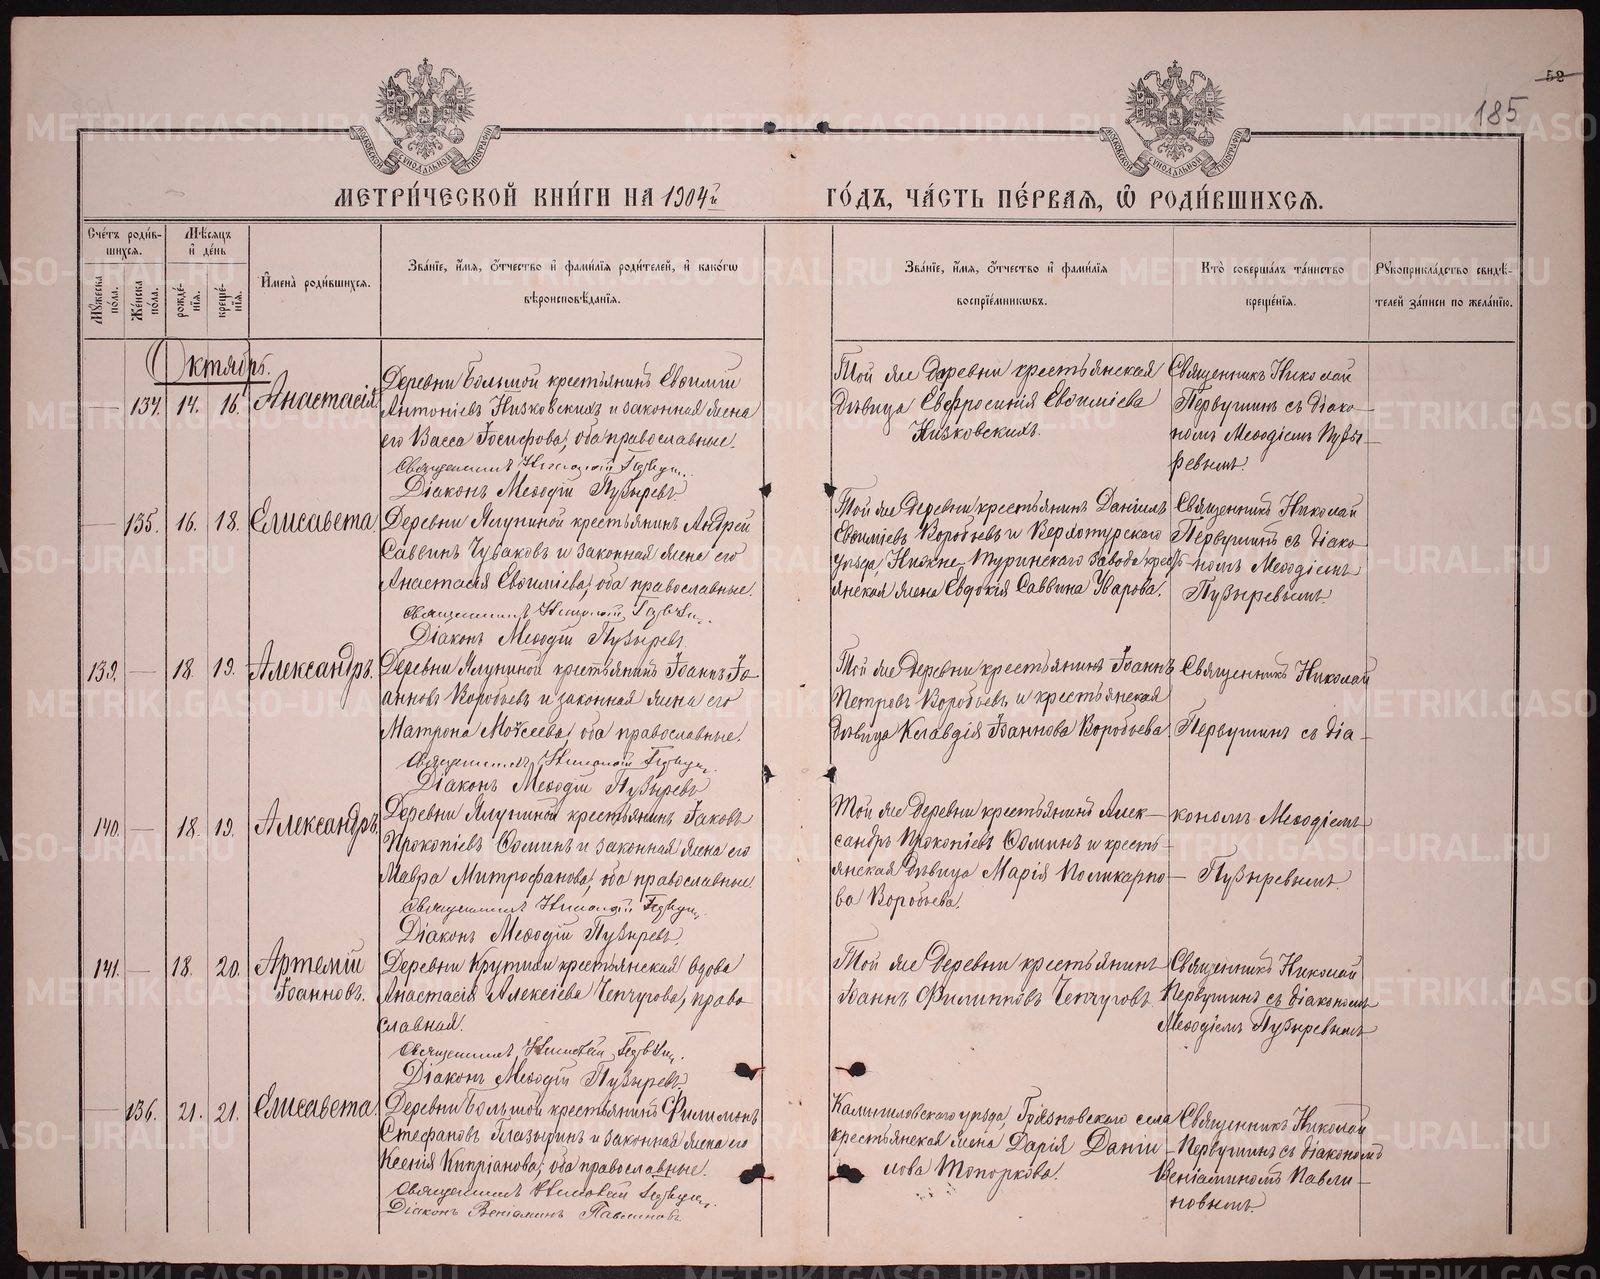 52
185
МЕТРИ́ЧЕСКОЙ КНИ́ГИ НА 1904й ГО́ДЪ, ЧА́СТЬ ПЕ́РВАЯ, Ѿ РОДИ́ВШИХСЯ.
Сче́тъ роди́вшихся.
Мѣсяцъ и де́нь
Мужеска пола.
Женска пола.
рожде́нїя.
креще́нїя.
Имена̀ роди́вшихся.
Зва́нїе, и́мя, о́тчество и фами́лїя роди́телей, и како́гѡ
вѣроисповѣ́данїя.
Зва́нїе, и́мя, о́тчество и фами́лїя
воспрїе́мниковъ.
Кто̀ соверша́лъ та́инство
креще́нїя.
Рукоприкла́дство свидѣ́-
телей за́писи по жела́нїю.
Октябрь.
134. 14. 16. Анастасія
Деревни Большой крестьянинъ Евѳимій
Антоніевъ Низковскихъ и законная жена
его Васса Іосифова, оба православные.
Священникъ Николай
Діаконъ Меѳодій Пузыревъ
Той же деревни крестьянская
дѣвица Евфросинія Евѳиміева
Низковскихъ.
Священникъ Николай
Первушинъ съ діако-
номъ Меѳодіемъ Пузы-
ревымъ.
135. 16. 18. Елисавета.
Деревни Ялуниной крестьянинъ Андрей
Саввинъ Чуваковъ и законная жена его
Анастасія Евѳиміева, оба православные.
Священникъ Николай
Діаконъ Меѳодій Пузыревъ
Той же деревни крестьянинъ Даніилъ
Евѳиміевъ Воробьевъ и Верхотурскаго
уѣзда, Нижне-Туринскаго завода крестъ-
янская жена Евдокія Саввина Уварова.
Священникъ Николай
Первушинъ съ діако-
номъ Меѳодіемъ
Пузыревымъ.
139. 18. 19. Александръ.
Деревни Ялуниной крестьянинъ Іоаннъ Іо-
анновъ Воробьевъ и законная жена его
Матрона Моѵсеева, оба православные.
Священникъ Николай
Діаконъ Меѳодій Пузыревъ
Той же деревни крестьянинъ Іоаннъ
Петровъ Воробьевъ и крестьянская
дѣвица Клавдія Іоаннова Воробьева.
Священникъ Николай
Первушинъ съ діа-
140. 18. 19. Александръ.
Деревни Ялуниной крестьянинъ Іаковъ
Прокопіевъ Ѳоминъ и законная жена его
Мавра Митрофанова, оба православные.
Священникъ Николай
Діаконъ Меѳодій Пузыревъ.
Той же деревни крестьянинъ Алек-
сандръ Прокопіевъ Ѳоминъ и кресть-
янская дѣвица Марія Поликарпо-
ва Воробьева.
кономъ Меѳодіемъ
Пузыревымъ.
141. 18. 20. Артемій
Іоанновъ.
Деревни Крутихи крестьянская вдова
Анастасія Алексіева Чепчугова, право-
славная.
Священникъ Николай
Діаконъ Меѳодій Пузыревъ.
Той же деревни крестьянинъ
Іоаннъ Филипповъ Чепчуговъ.
Священникъ Николай
Первушинъ съ діакономъ
Меѳодіемъ Пузыревымъ
136. 21. 21. Елисавета.
Деревни Большой крестьянинъ Филимонъ
Стефановъ Глазыринъ и законная жена его
Ксенія Кипріанова, оба православные.
Священникъ Николай
Діаконъ Веніаминъ Павлиновъ.
Камышловскаго уѣзда, Грязновскаго села
крестьянская жена Дарія Дані-
илова Топоркова.
Священникъ Николай
Первушинъ съ діакономъ
Веніаминомъ Павли-
новымъ.
METRIKI.GASO-URAL.RU